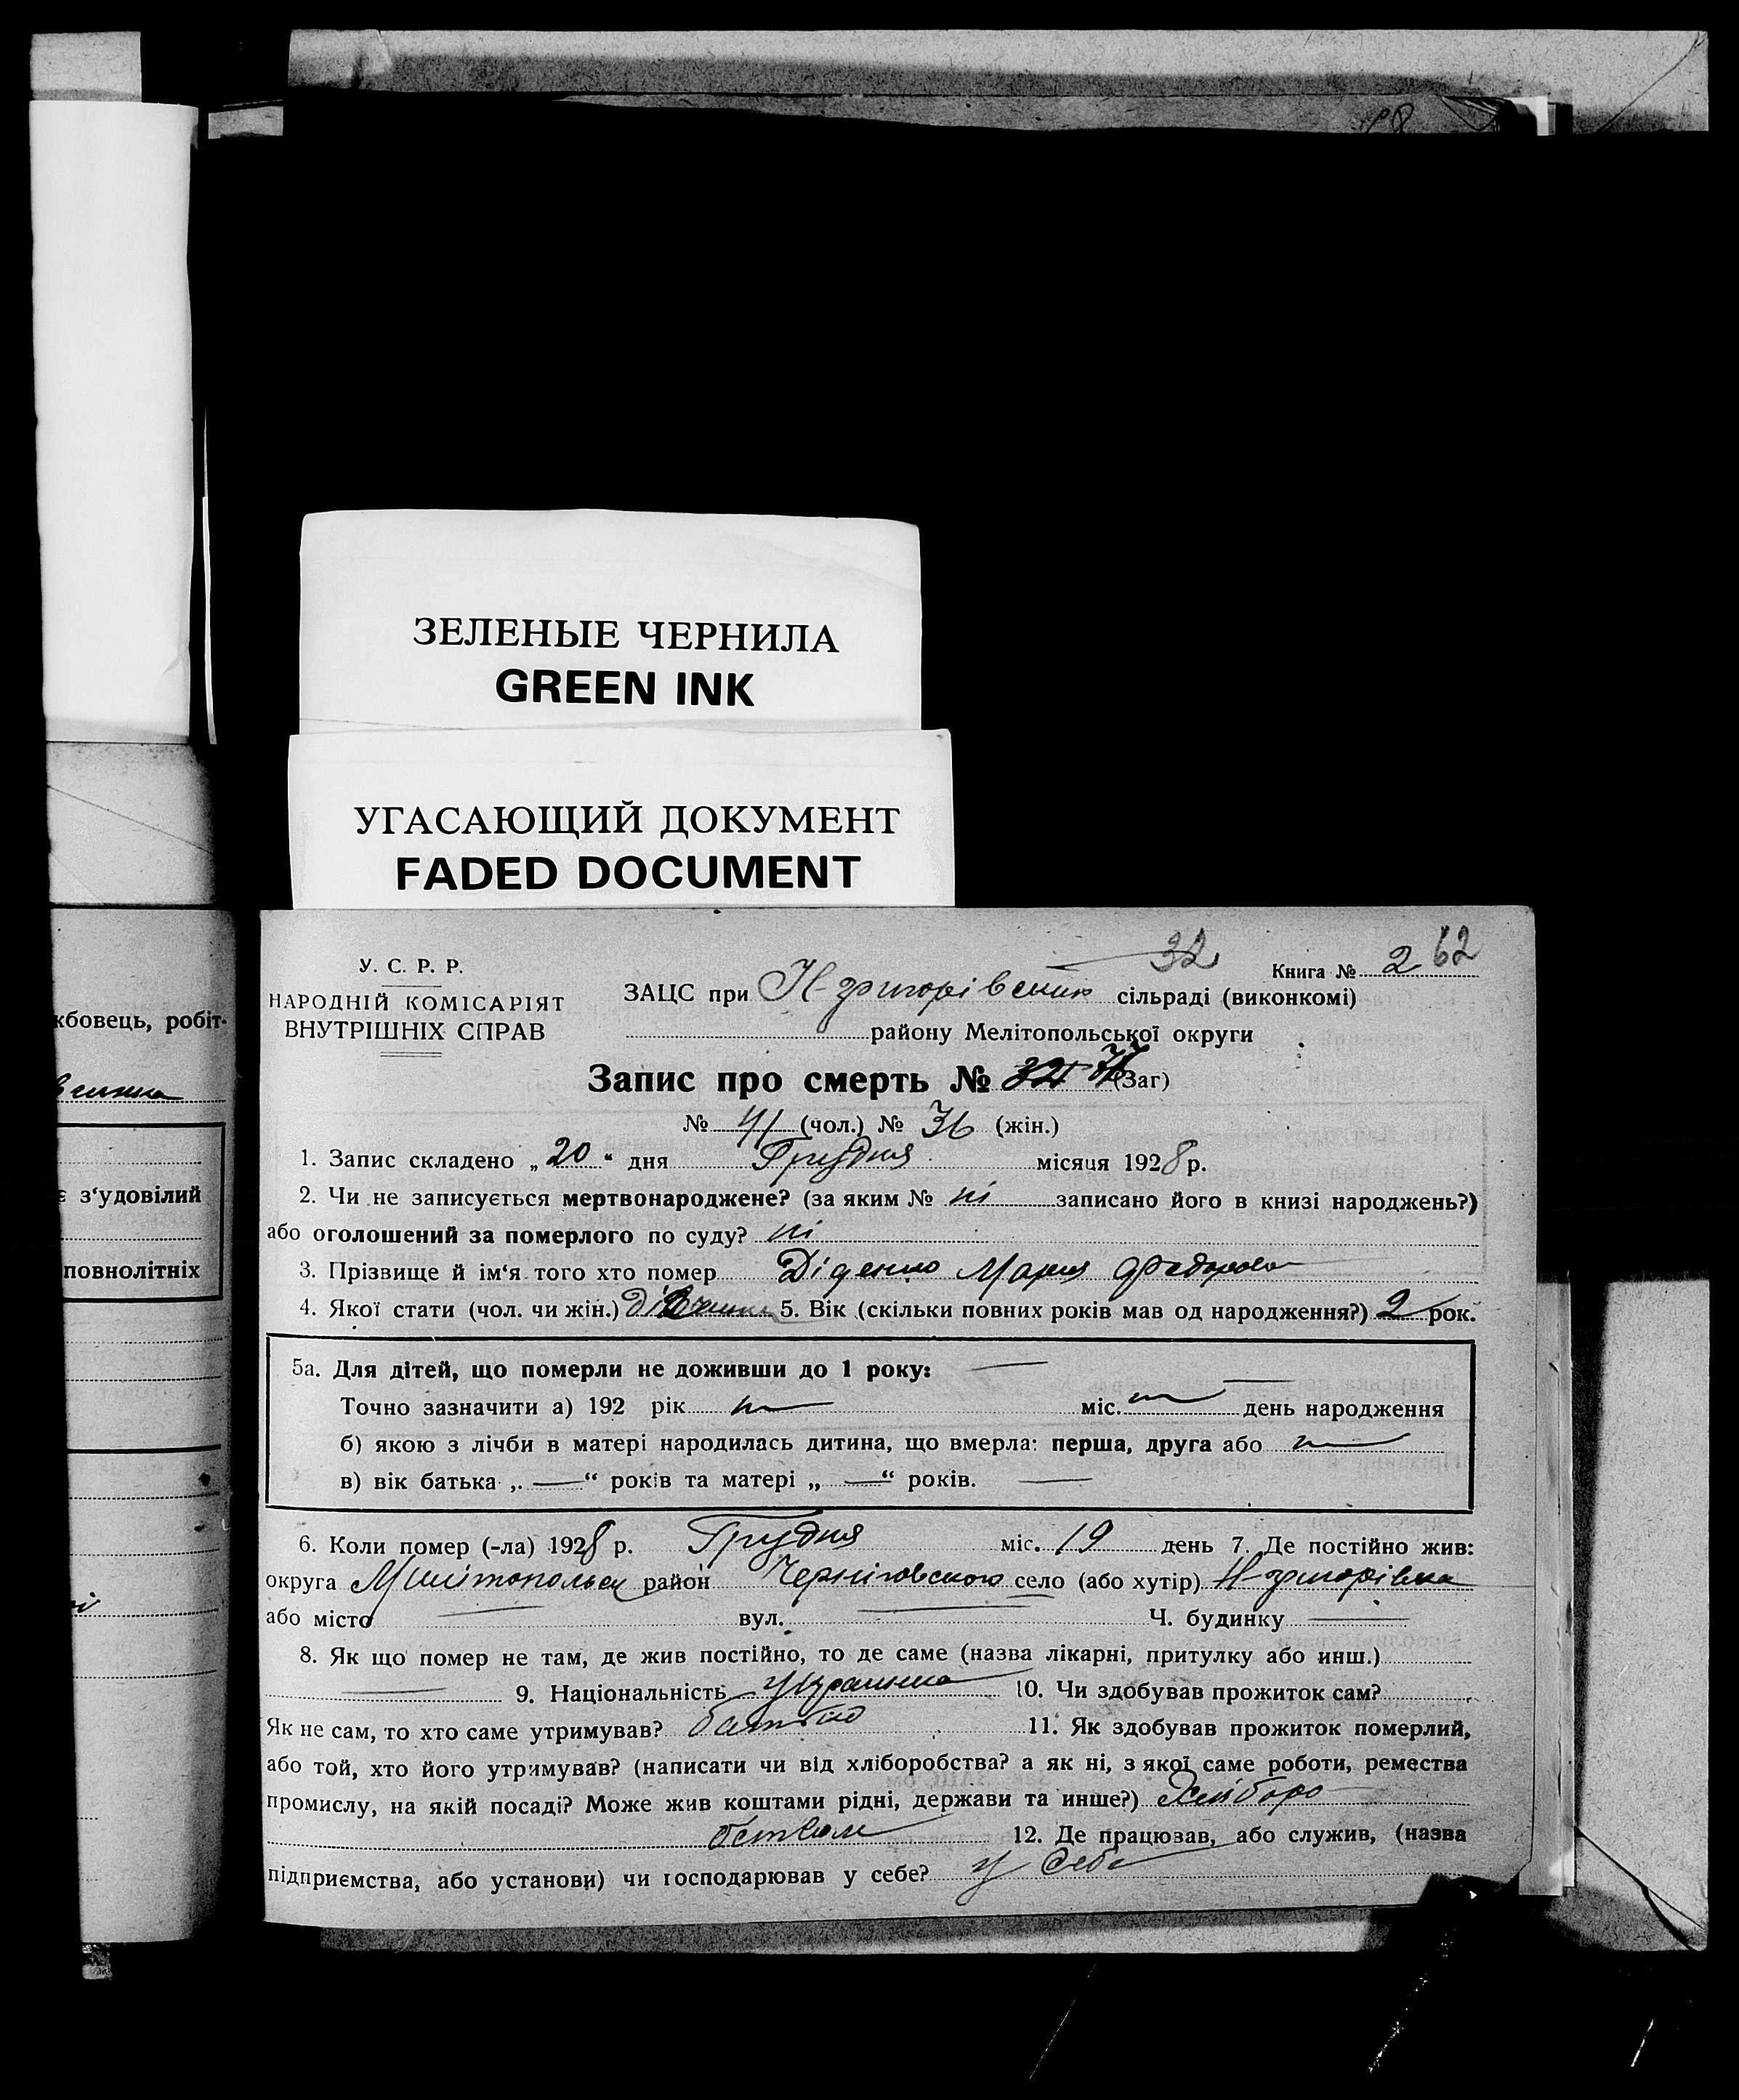 ЗЕЛЕНЫЕ ЧЕРНИЛА
GREEN INK
УГАСАЮЩИЙ ДОКУМЕНТ
FADED DOCUMENT
жбовець, робіт-
є з'удовілий
повнолітніх
32
У. С. Р. Р.
НАРОДНІЙ КОМІСАРІЯТ
ВНУТРІШНІХ СПРАВ
Книга № 2 62
ЗАЦС при Н-григорівській сільраді (виконкомі)
району Мелітопольської округи
Запис про смерть № 77 (Заг)
№ 41 (чол.) № 36 (жін.)
1. Запис складено „20“ дня Грудня місяця 1928 р.
2. Чи не записується мертвонароджене? (за яким № ні записано його в книзі народжень?)
або оголошений за померлого по суду? ні
3. Прізвище й ім'я того хто помер Діденко Мария Федоровна
4. Якої стати (чол. чи жін.) дівчинка 5. Вік (скільки повних років мав од народження?) 2 рок.
5а. Для дітей, що померли не доживши до 1 року: —
Точно зазначити а) 192 рік міс. день народження
б) якою з лічби в матері народилась дитина, що вмерла: перша, друга або
в) вік батька „—“ років та матері „—“ років. —
6. Коли помер (-ла) 1928 р. Грудня міс. 19 день 7. Де постійно жив:
округа Мелітопольск район Черніговського село (або хутір) Н-григорівка
або місто — вул. — Ч. будинку —
8. Як що помер не там, де жив постійно, то де саме (назва лікарні, притулку або инш.)
— 9. Національність Українка 10. Чи здобував прожиток сам?
Як не сам, то хто саме утримував? батько 11. Як здобував прожиток померлий,
або той, хто його утримував? (написати чи від хліборобства? а як ні, з якої саме роботи, ремества
промислу, на якій посаді? Може жив коштами рідні, держави та инше?) Хліборо
бством 12. Де працював, або служив, (назва
підприємства, або установи) чи господарював у себе? у себе